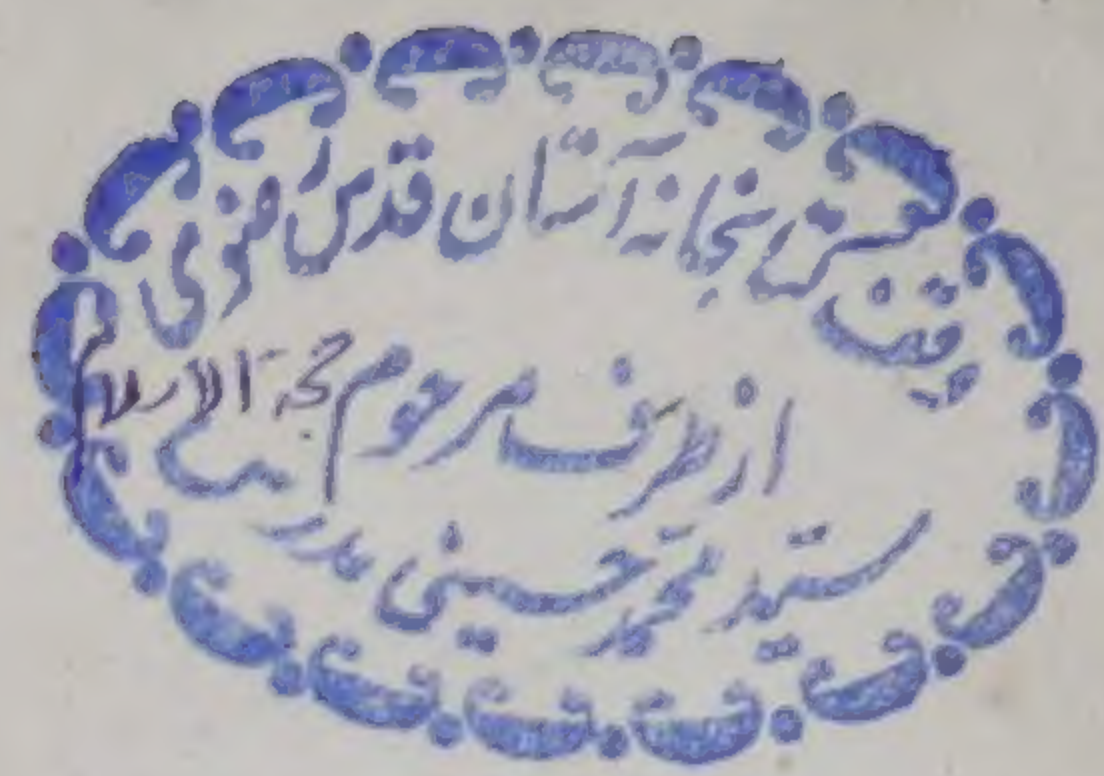 وقف کتابخانه آستان قدس رضوی
از طرف مرحوم حجة الاسلام
سید محمد حسینی